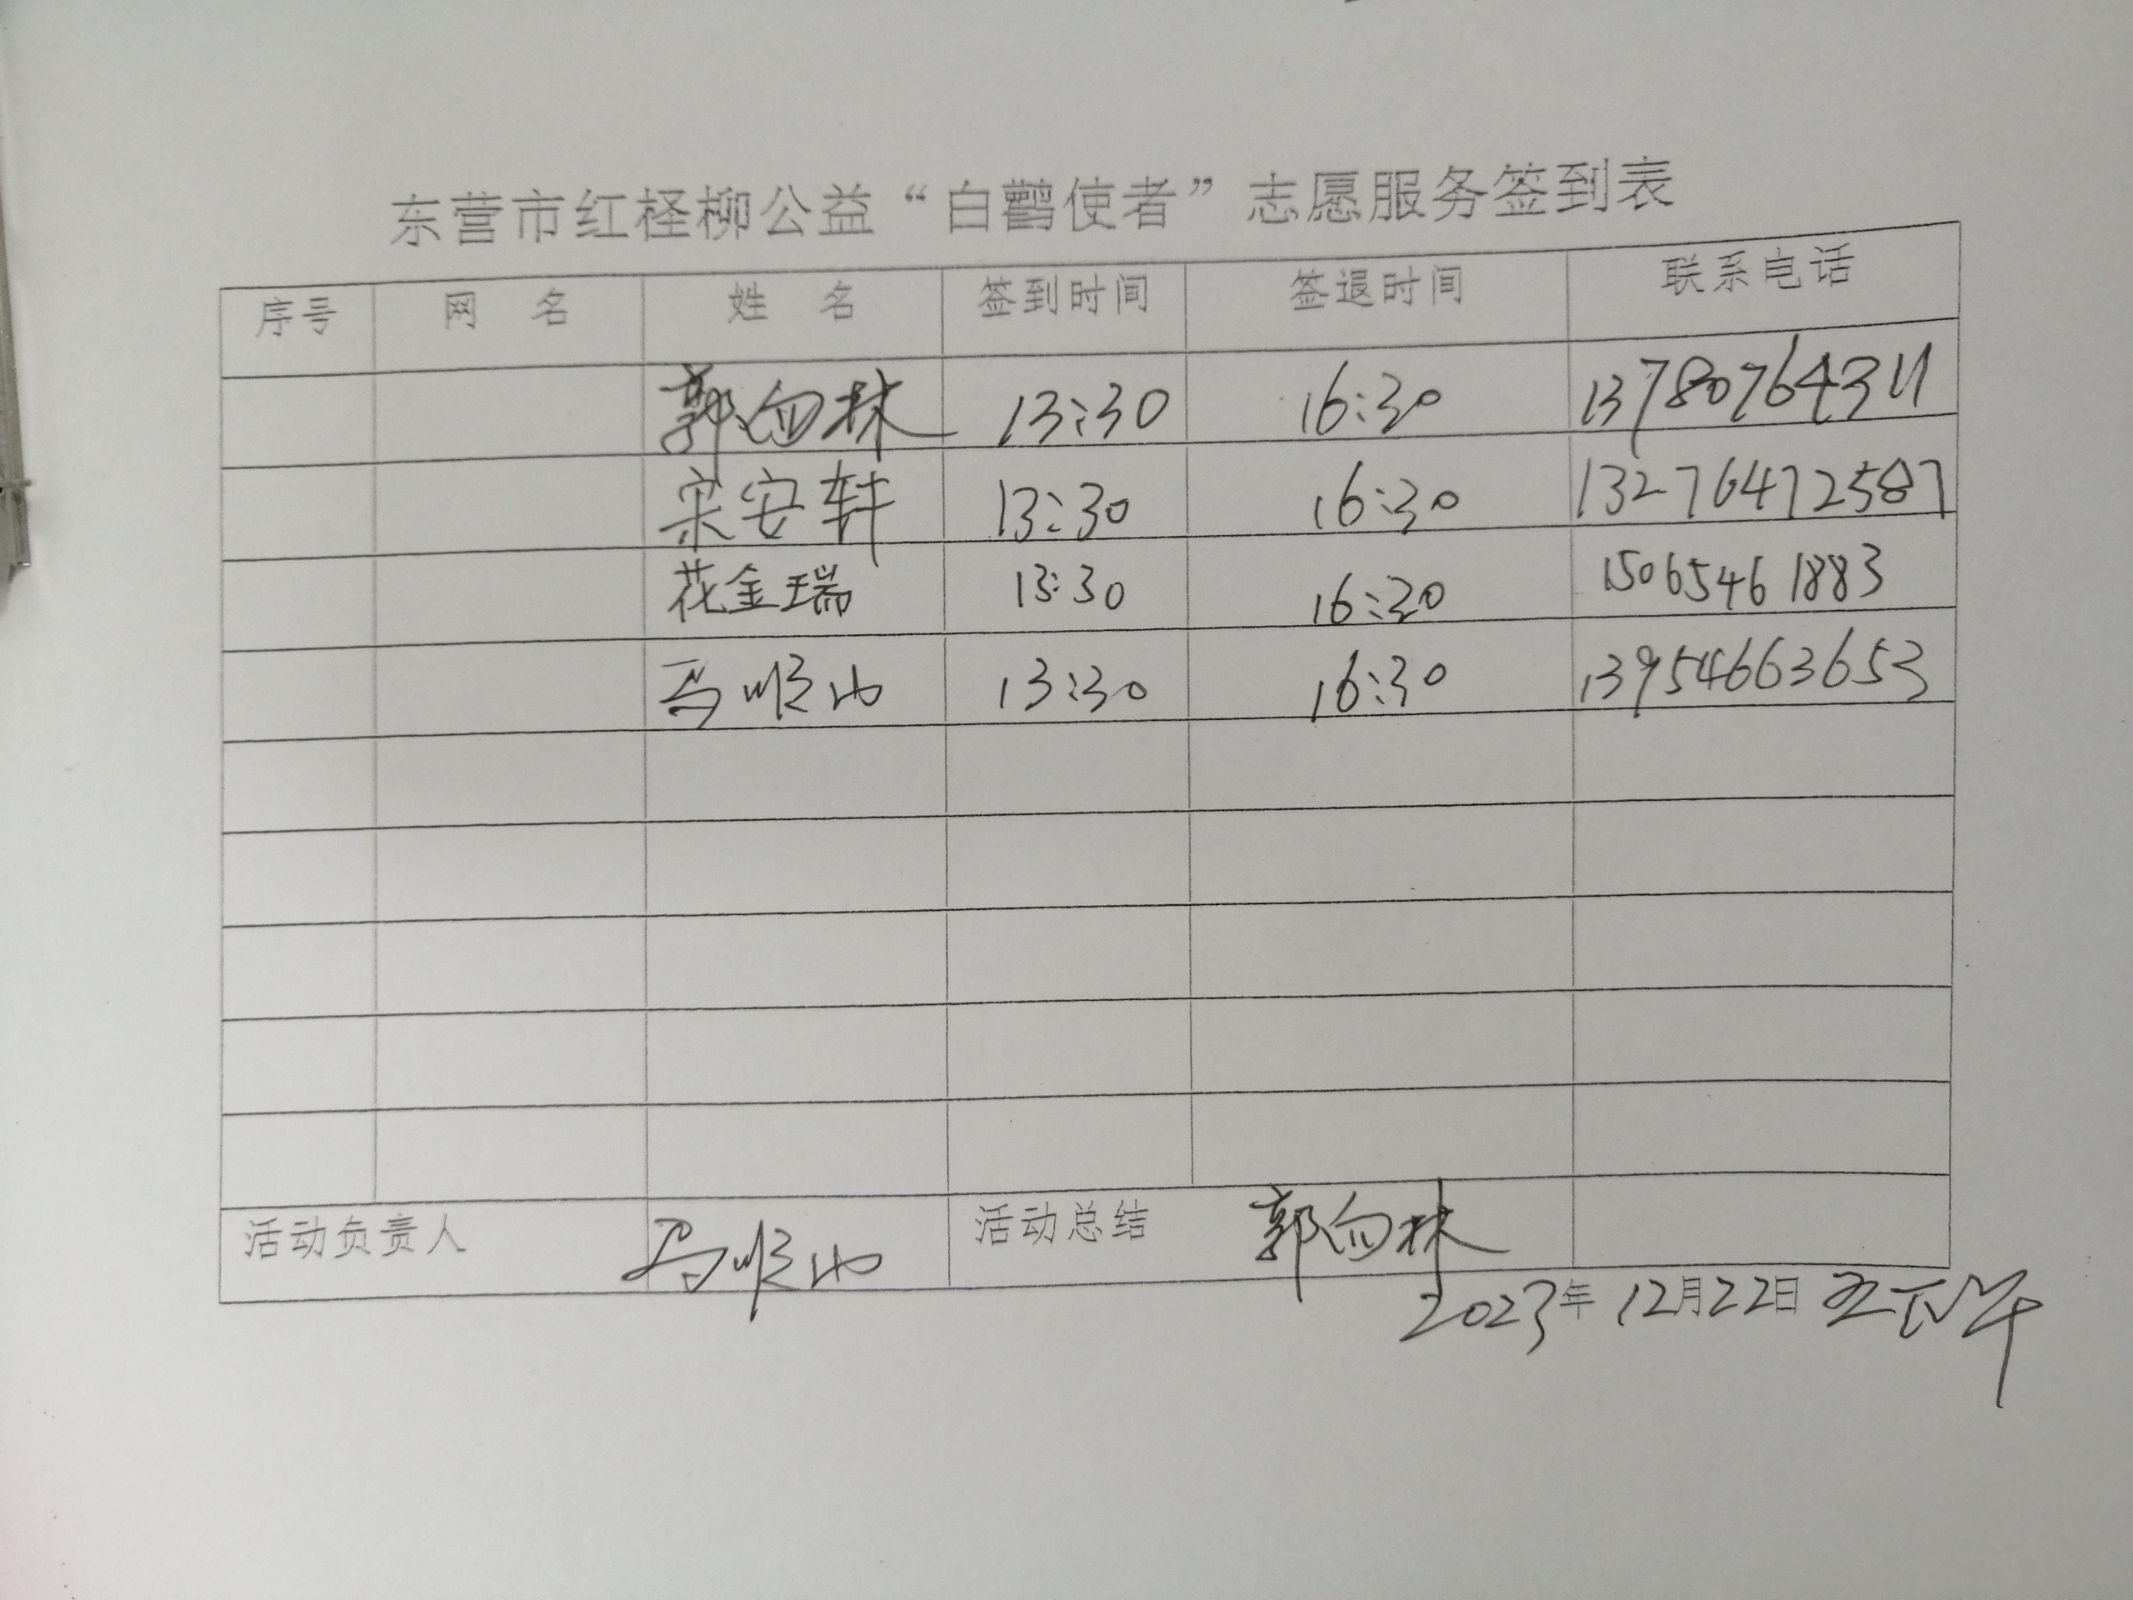 东营市红柽柳公益“白鹳使者”志愿服务签到表
序号 网 名 姓 名 签到时间 签退时间 联系电话
郭向林 13:30 16:30 13780764311
宋安轩 13:30 16:30 13276472587
花金瑞 13:30 16:30 15065461883
马顺山 13:30 16:30 13954663653
活动负责人 马顺山 活动总结 郭向林
2023年12月22日 下午